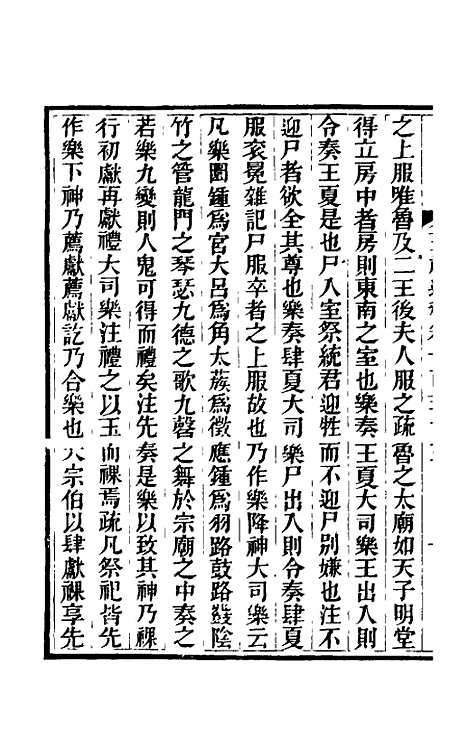 之上服唯魯及二王後夫人服之疏魯之太廟如天子明堂
得立房中者房則東南之室也樂奏王夏大司樂王出入則
令奏王夏是也尸入室祭統君迎牲而不迎尸别嫌也注不
迎尸者欲全其尊也樂奏肆夏大司樂尸出入則令奏肆夏
服衮冕雜記尸服卒者之上服故也乃作樂降神大司樂云
凡樂圜鍾爲宮大呂爲角太蔟爲徵應鍾爲羽路鼓路鼗陰
竹之管龍門之琴瑟九德之歌九磬之舞於宗廟之中奏之
若樂九變則人鬼可得而禮矣注先奏是樂以致其神乃祼
行初獻再獻禮大司樂注禮之以玉而祼焉疏凡祭祀皆先
作樂下神乃薦獻薦獻訖乃合樂也大宗伯以肆獻祼享先